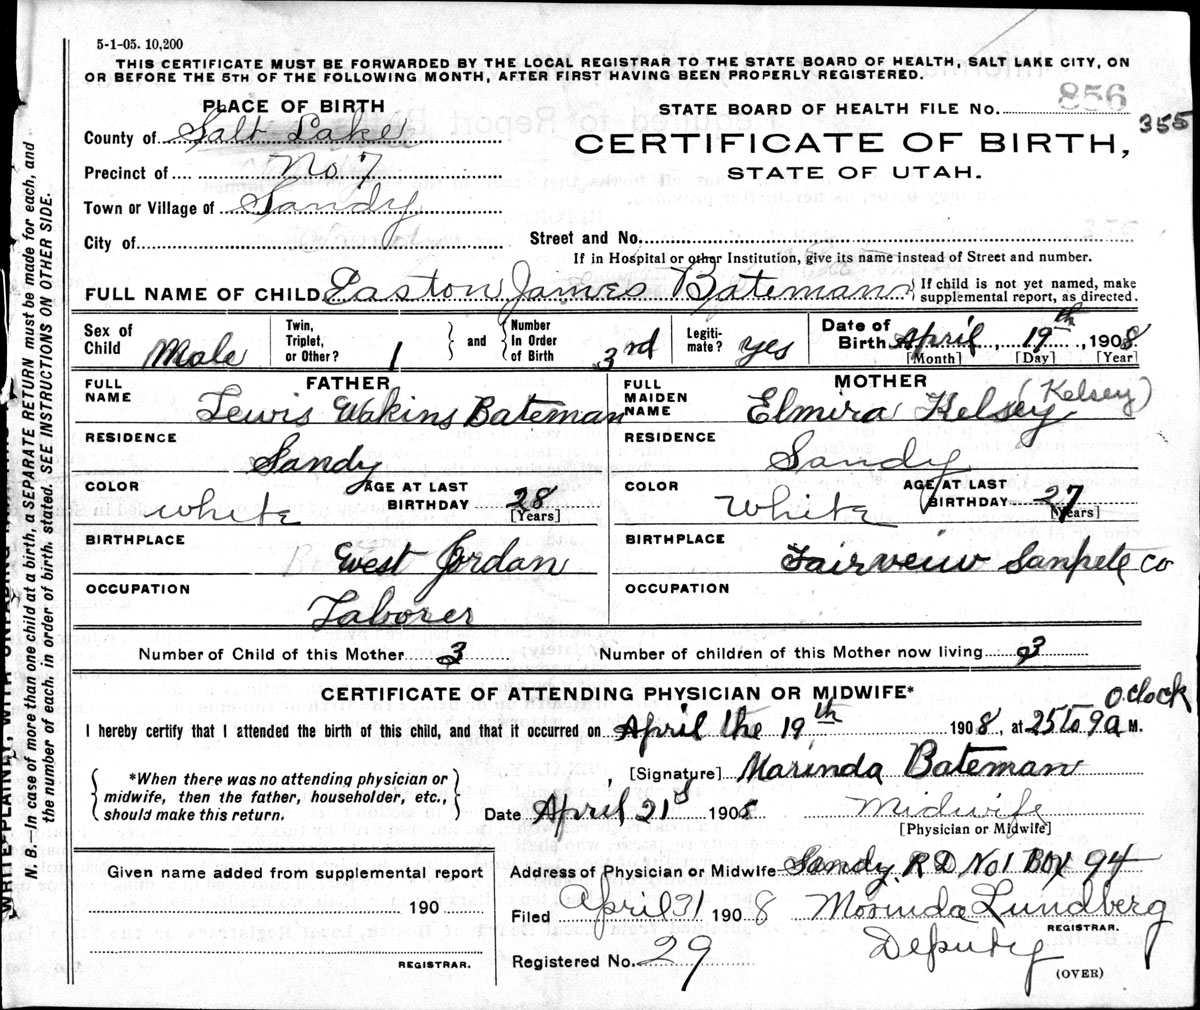 5-1-05. 10,200
THIS CERTIFICATE MUST BE FORWARDED BY THE LOCAL REGISTRAR TO THE STATE BOARD OF HEALTH, SALT LAKE CITY, ON
OR BEFORE THE 5TH OF THE FOLLOWING MONTH, AFTER FIRST HAVING BEEN PROPERLY REGISTERED.
PLACE OF BIRTH
STATE BOARD OF HEALTH FILE No. 856
355
County of Salt Lake
CERTIFICATE OF BIRTH,
Precinct of No 7
STATE OF UTAH.
Town or Village of Sandy
City of
Street and No.
If in Hospital or other Institution, give its name instead of Street and number.
FULL NAME OF CHILD Easton James Bateman } If child is not yet named, make
supplemental report, as directed.
Sex of Child Male
Twin, Triplet, or Other? 1 } and { Number In Order of Birth 3rd
Legitimate? yes
Date of Birth April, 19th, 1908
[Month] [Day] [Year]
FATHER
FULL NAME Lewis Wakins Bateman
MOTHER
FULL MAIDEN NAME Elmira Kelsey (Kelsey)
RESIDENCE Sandy
RESIDENCE Sandy
COLOR White AGE AT LAST BIRTHDAY 28 [Years]
COLOR White AGE AT LAST BIRTHDAY 27 [Years]
BIRTHPLACE West Jordan
BIRTHPLACE Fairveiw Sanpete Co
OCCUPATION Laborer
OCCUPATION
Number of Child of this Mother 3 Number of children of this Mother now living 3
CERTIFICATE OF ATTENDING PHYSICIAN OR MIDWIFE*
I hereby certify that I attended the birth of this child, and that it occurred on April the 19th 1908, at 25 to 9 a M. Oclock
*When there was no attending physician or
midwife, then the father, householder, etc.,
should make this return.
[Signature] Marinda Bateman
Date April 21 1908 Midwife
[Physician or Midwife]
Given name added from supplemental report
190
REGISTRAR.
Address of Physician or Midwife Sandy. R D No 1 Box 94
Filed April 31 1908 Lundberg
REGISTRAR.
Registered No. 29 Deputy
(OVER)
WRITE PLAINLY, WITH
N. B.—In case of more than one child at a birth, a SEPARATE RETURN must be made for each, and
the number of each, in order of birth, stated. SEE INSTRUCTIONS ON OTHER SIDE.